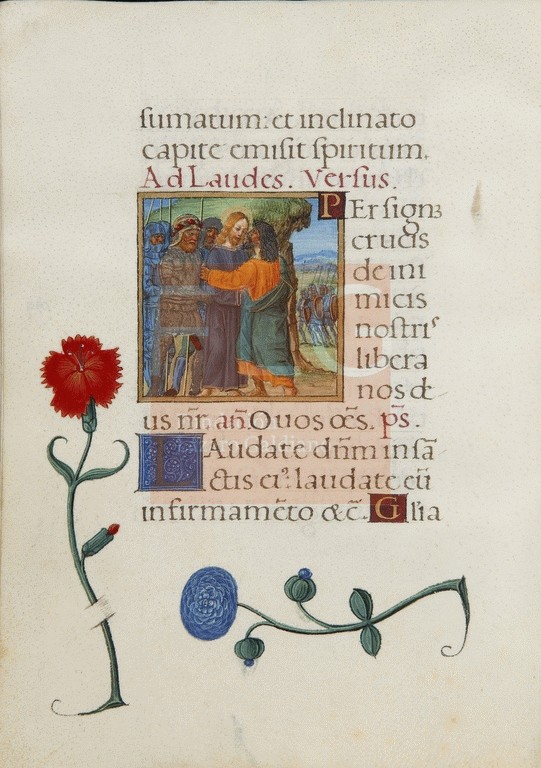 sumatum: et inclinato
capite emisit spiritum.
Ad Laudes. Versus.
PEr signū
crucis
de ini
micis
nostris
libera
nos de
us nr̄. an̄. O uos oēs. ps̄.
LAudate dn̄m in sā
ctis eiꝰ: laudate eū
in firmamēto &c̄. Glia